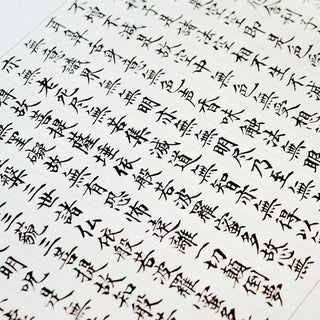 空即是色受想
諸法空相不生不滅
不増不減是故空中無色無受想
耳鼻舌身意無色声香味触法無
無意識界無無明亦無無明尽乃至無
亦無老死尽無苦集滅道無智亦無得以
得故菩提薩埵依般若波羅蜜多故無
罣礙故無有恐怖遠離一切顛倒夢
槃三世諸仏依般若波羅蜜多
三藐三菩提故知般若
明呪是無